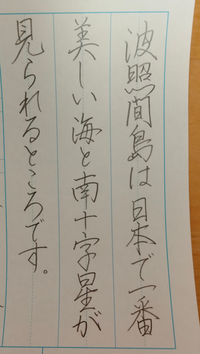 波照間島は日本で一番
美しい海と南十字星が
見られるところです。